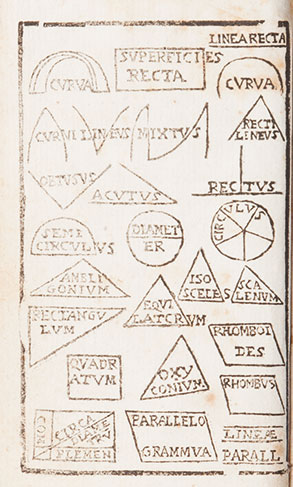 LINEA RECTA
CVRVA
SUPERFICIES
RECTA
CVRVA
CVRVILINEUS MIXTUS
RECTI
LINEUS
OBTUSUS
ACUTUS
RECTUS
SEMI
CIRCULUS
DIAMET
ER
CIRCULUS
AMBLI
GONIUM
ISO
SCELES
SCA
LENUM
RECTANGU
LUM
EQUI
LATERUM
RHOMBOI
DES
QUADR
ATUM
OXY
GONIUM
RHOMBUS
CIRCA
PARALLELO
GRAMMVA
LINEÆ
PARALL